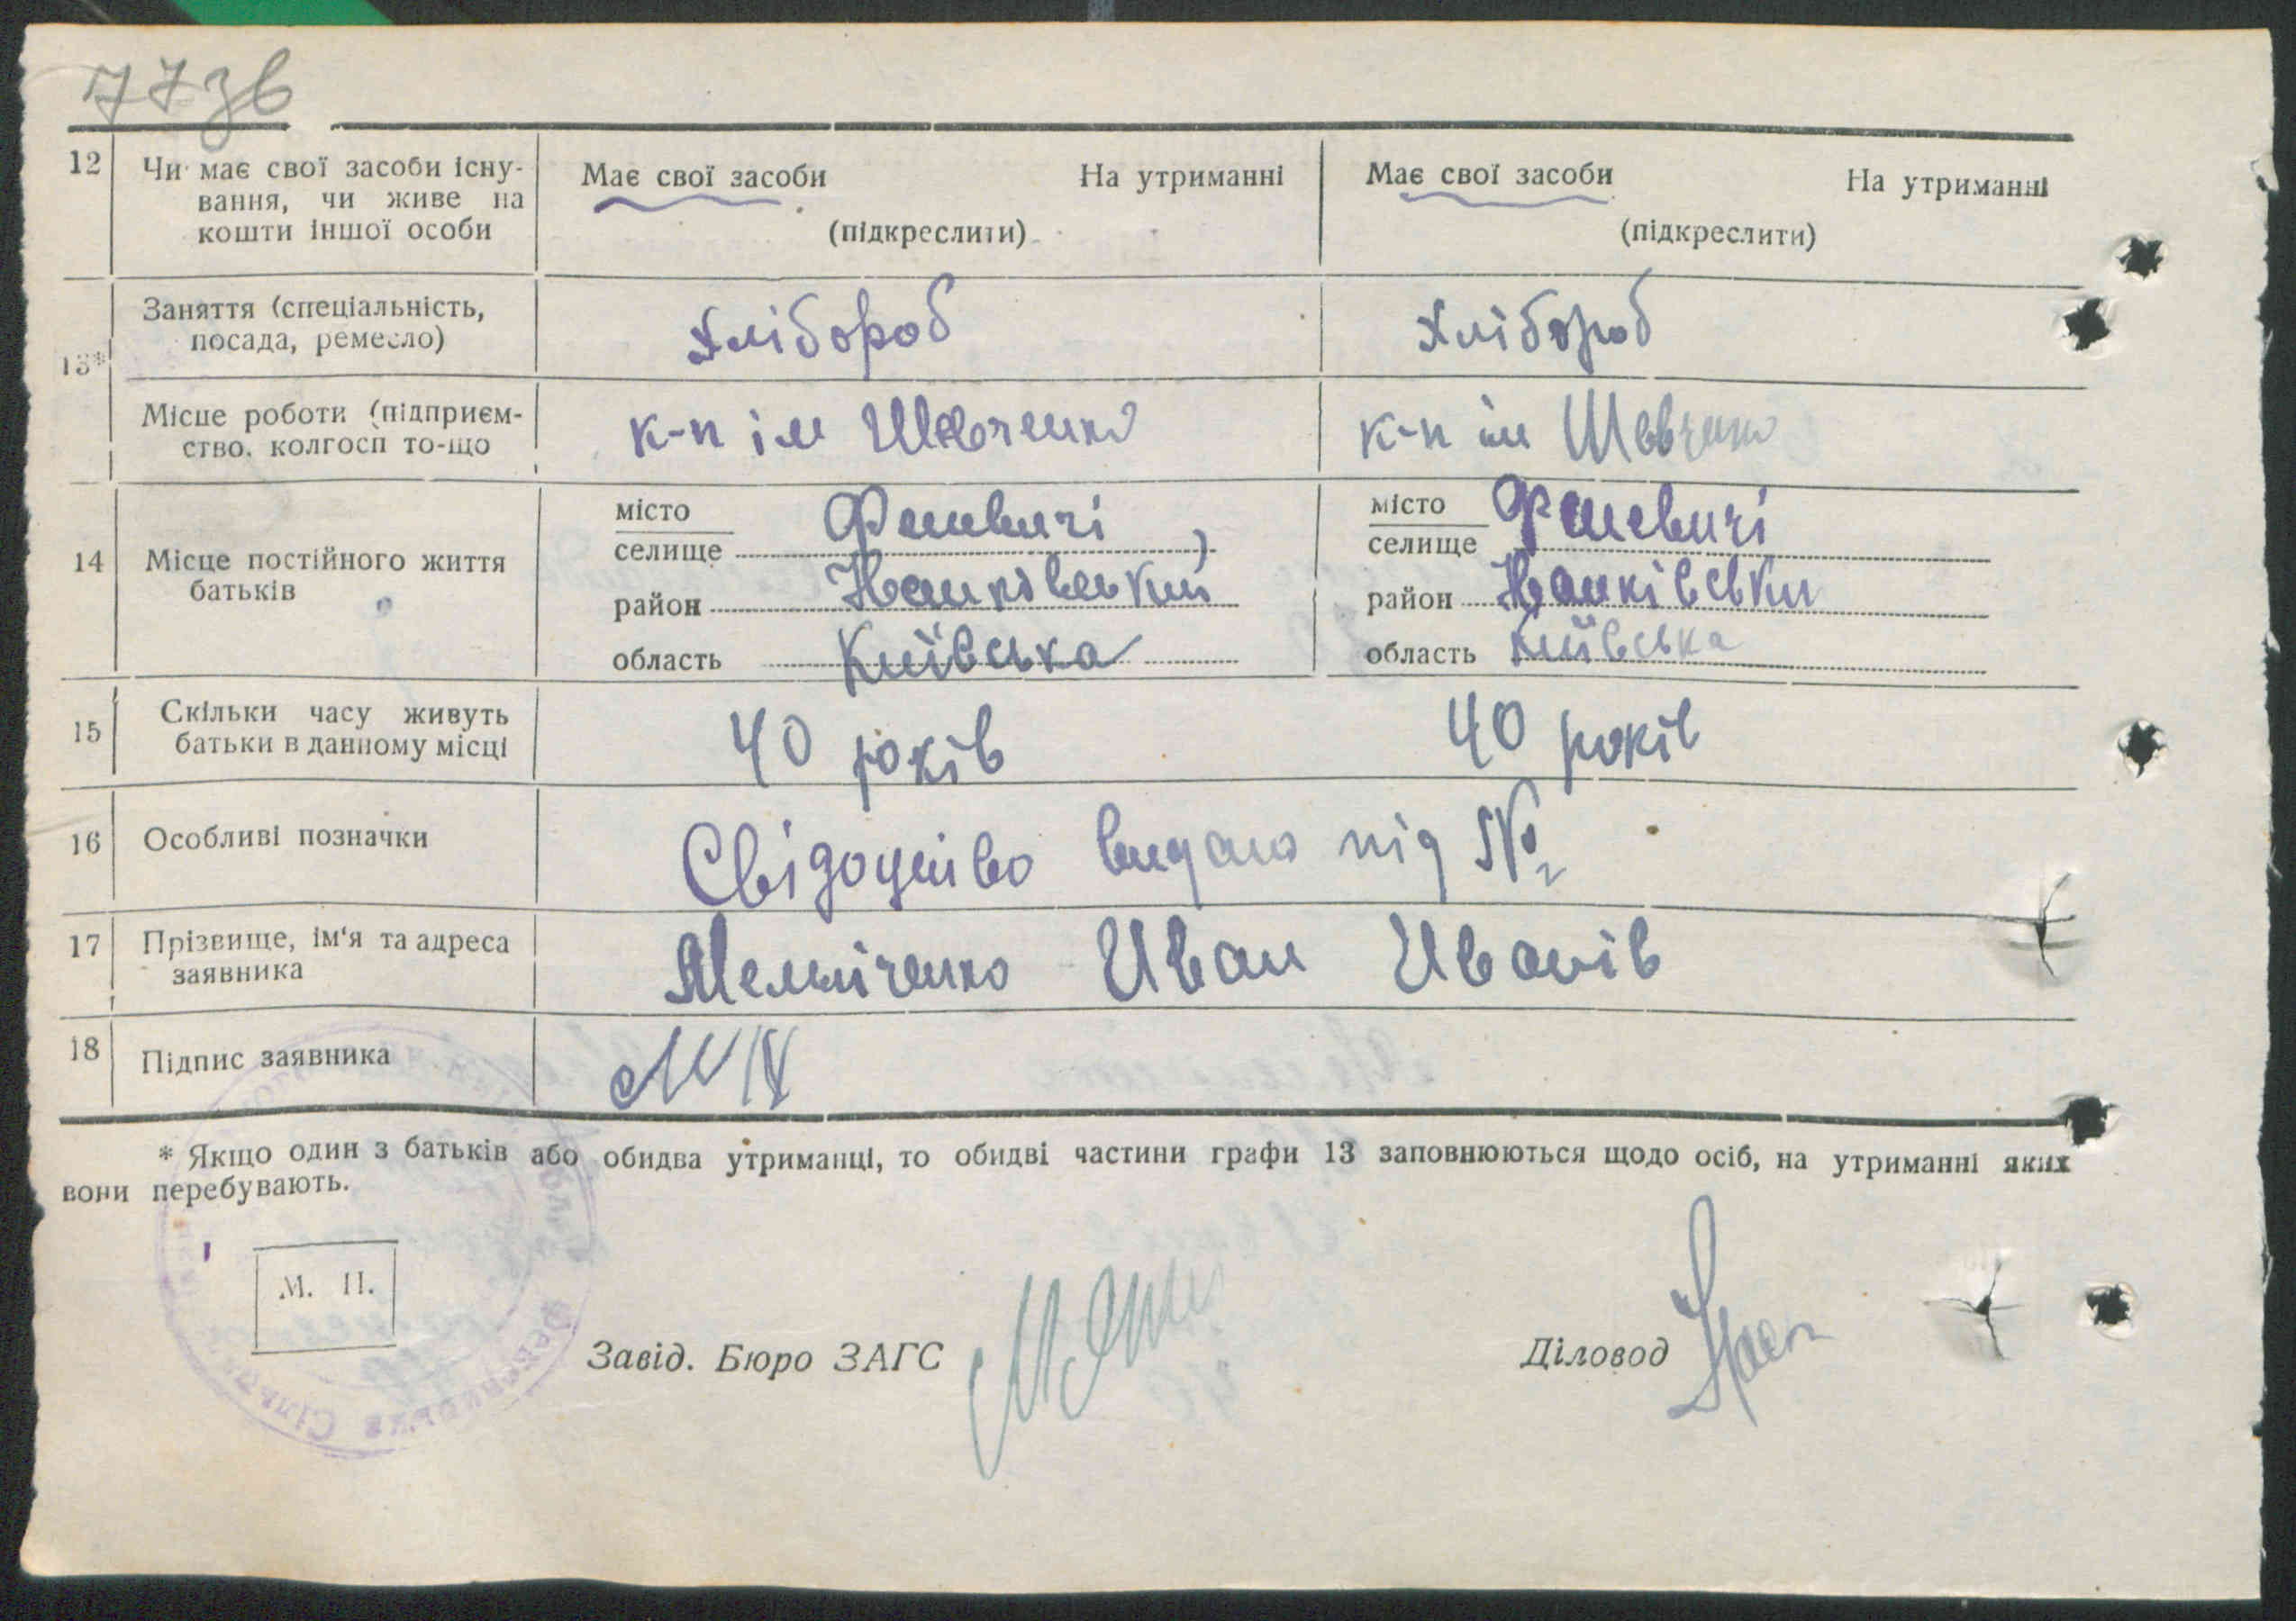 77зв
12 Чи має свої засоби існу-
вання, чи живе на
кошти іншої особи
Має свої засоби На утриманні
(підкреслити)
Має свої засоби На утриманні
(підкреслити)
13*
Заняття (спеціальність,
посада, ремесло)
Хлібороб
Хлібороб
Місце роботи (підприєм-
ство. колгосп то-що
к-п ім Шевченко
к-п ім Шевченко
14 Місце постійного життя
батьків
місто
селище Феневичі
район Іванківський
область Київська
місто
селище Феневичі
район Іванківськи
область Київська
15 Скільки часу живуть
батьки в данному місці
40 років
40 років
16 Особливі позначки
Свідоцтво видано під №
17 Прізвище, ім'я та адреса
заявника
Мельніченко Иван Иванів
18 Підпис заявника
* Якщо один з батьків або обидва утриманці, то обидві частини графи 13 заповнюються щодо осіб, на утриманні яких
вони перебувають.
М. П.
Завід. Бюро ЗАГС
Діловод
Феневицька Сільс